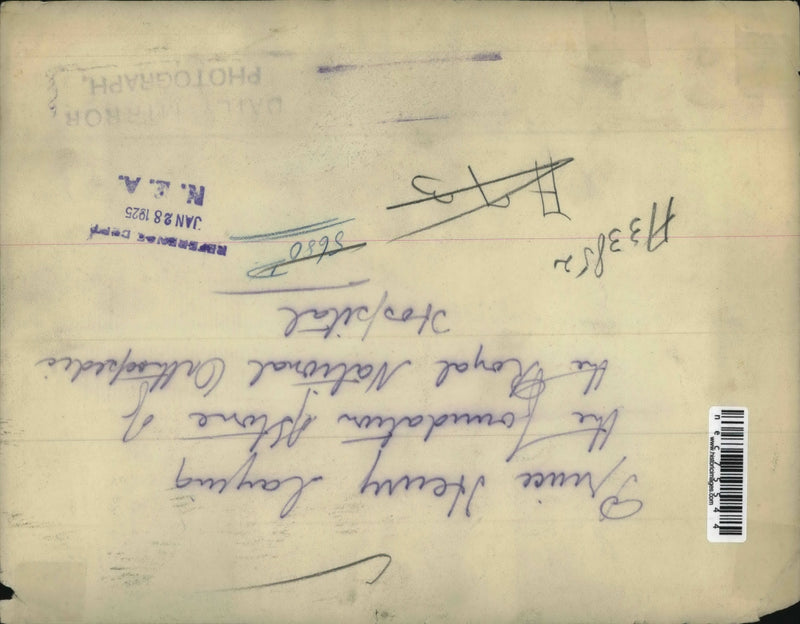 Prince Henry Laying
the foundation Stone of
the Royal National Orthopedic
Hospital
A33852
5650
REFERENCE COPY
JAN 28 1925
N. E. A.
DAILY MIRROR
PHOTOGRAPH.
www.historicimages.com
nec75544